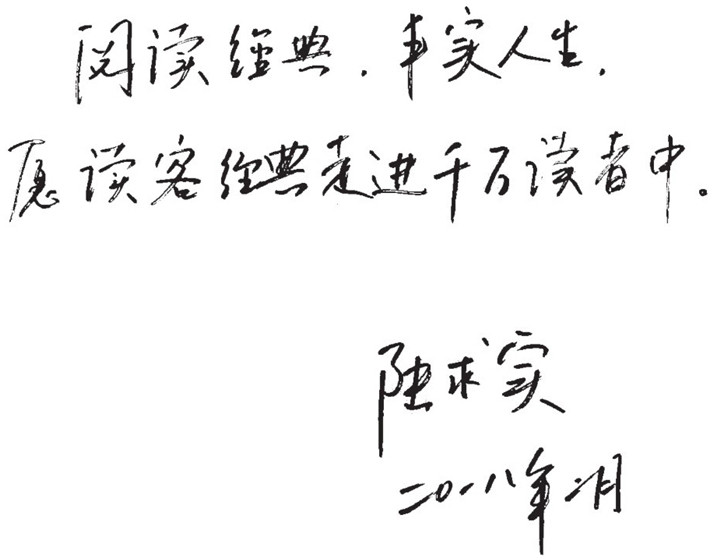 阅读经典,丰实人生,
愿读客经典走进千万读者中。
陆求实
二〇一八年二月